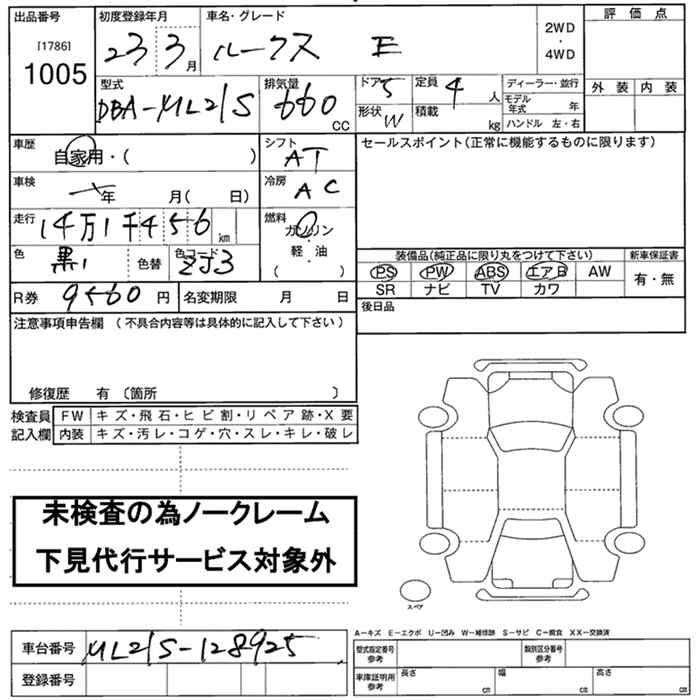 出品番号 初度登録年月 車名・グレード 評価点
[1786] 1005 23 3月 ルークス E 2WD・4WD
外装 内装
型式 排気量 ドア 5 定員 4人 ディーラー・並行
DBA-ML21S 660CC 形状 W 積載 kg モデル年式 年
ハンドル 左・右
車歴 自家用・( ) シフト AT セールスポイント(正常に機能するものに限ります)
車検 年 月( 日) 冷房 AC
走行 14万1千456km 燃料 ガソリン
軽・油
( )
色 黒 色替 色コード ZJ3 装備品(純正品に限り丸をつけて下さい) 新車保証書
PS PW ABS エアB AW 有・無
SR ナビ TV カワ
R券 9560円 名変期限 月 日 後日品
注意事項申告欄 (不具合内容等は具体的に記入して下さい)
修復歴 有〔箇所 〕
検査員 FW キズ・飛石・ヒビ割・リペア跡・X要
記入欄 内装 キズ・汚レ・コゲ・穴・スレ・キレ・破レ
未検査の為ノークレーム
下見代行サービス対象外
スペア
A-キズ E-エクボ U-凹み W-補修跡 S-サビ C-腐食 XX-交換済
車台番号 ML21S-128925 型式指定番号 参考 類別区分番号 参考
登録番号 車庫証明用 参考 長さ cm 幅 cm 高さ cm